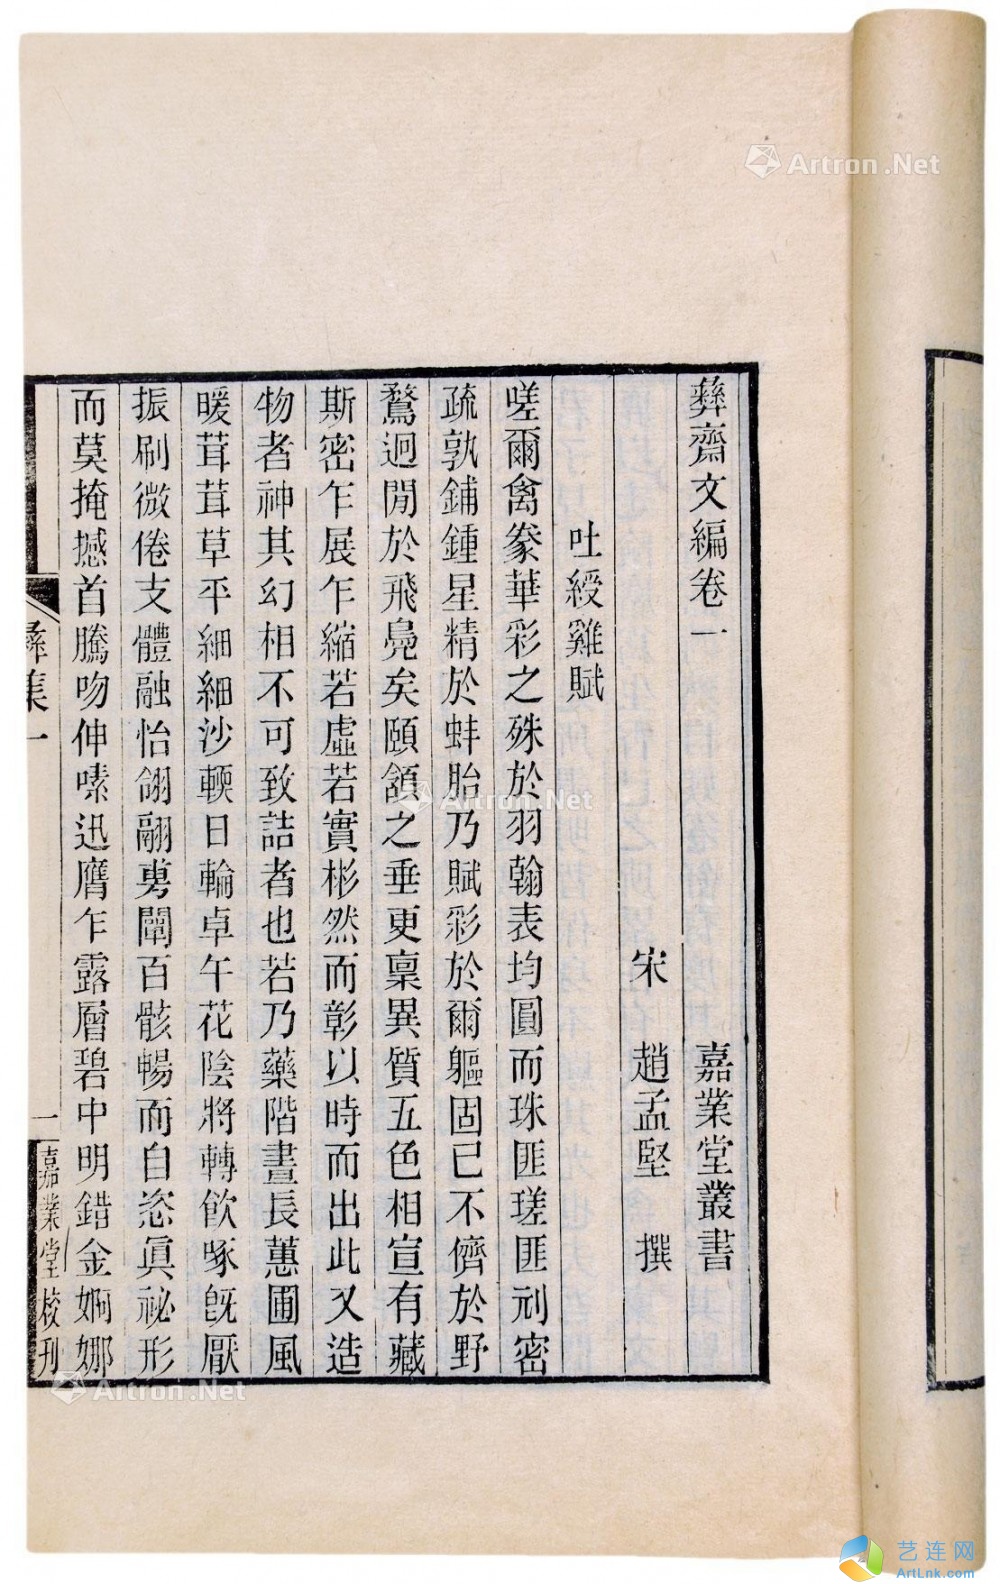 彝齋文編卷一 嘉業堂叢書
宋 趙孟堅 撰
吐綬雞賦
嗟爾禽豢華彩之殊於羽翰表均圓而珠匪瑳匪刓密
疏孰鋪鍾星精於蚌胎乃賦彩於爾軀固已不儕於野
鶩迥閒於飛鳧矣頤頷之垂更稟異質五色相宣有藏
斯密乍展乍縮若虛若實彬然而彰以時而出此又造
物者神其幻相不可致詰者也若乃藥階晝長蕙圃風
暖茸茸草平細細沙輭日輪卓午花陰將轉飲啄旣厭
振刷微倦支體融怡翎翮旉闡百骸暢而自恣眞祕形
而莫掩撼首騰吻伸嗉迅膺乍露層碧中明錯金婀娜
彝集一
一
嘉業堂校刊
Artron.Net
Artron.Net
Artron.Net
艺连网
ArtLnk.com